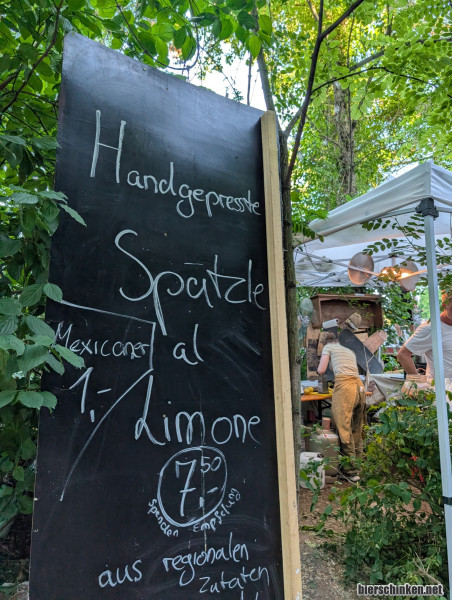 Handgepresste
Spätzle
al
Limone
Mexicaner
1,-
7,50
Spenden Empfehlung
aus regionalen
Zutaten
bierschinken.net